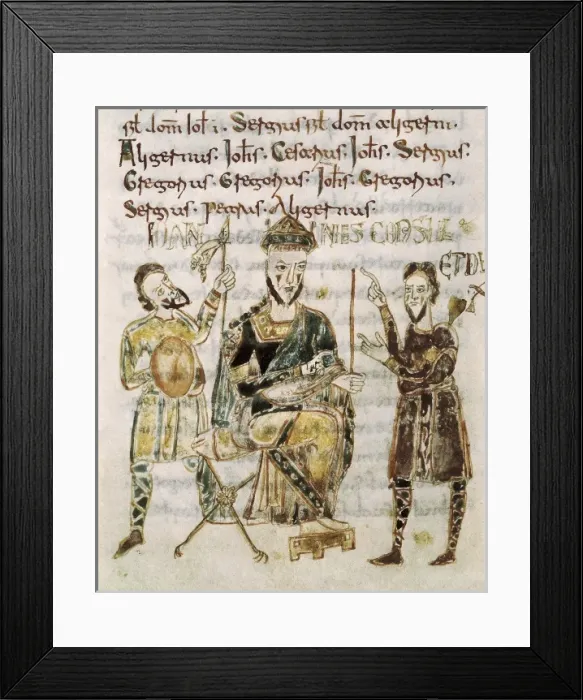 dom̄ Ioħ i. Sergius dom̄ aligerni.
Aligernus. Ioħs. Cesarius. Ioħs. Sergius.
Gregorius. Gregorius. Ioħs. Gregorius.
Sergius. Petrus. Aligernus.
IOHAN NES CONSUL
ET DU